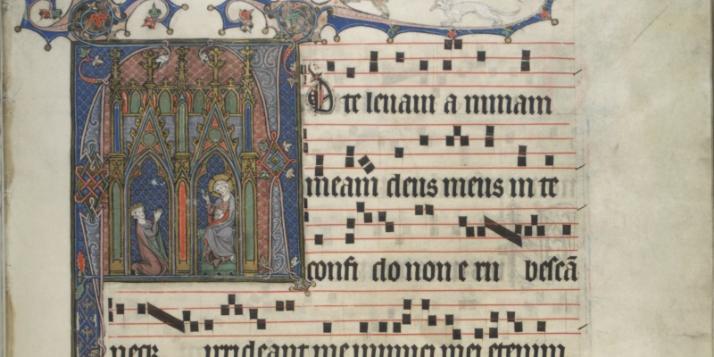 d te levavi a nimam
meam deus meus in te
confi do non e ru besca
neqz irrideant me inimici mei etenim